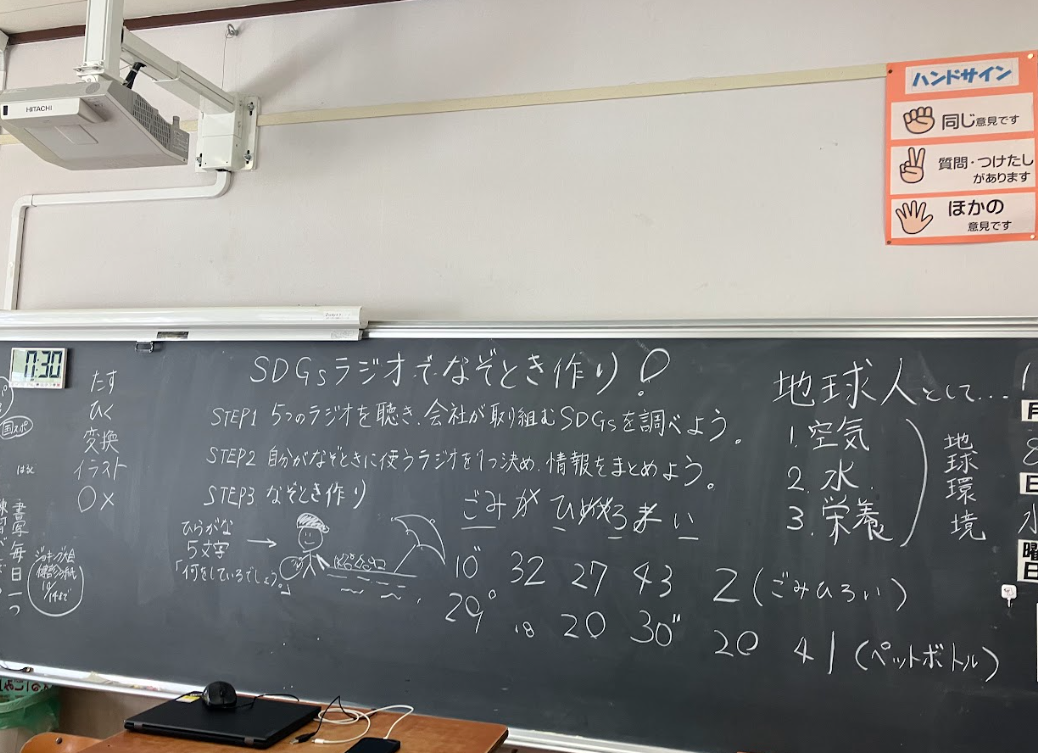 HITACHI
ハンドサイン
同じ意見です
質問・つけたし
があります
ほかの
意見です
11:30
国スポ
たす
ひく
変換
イラスト
○×
SDGsラジオでなぞとき作り!
STEP1 5つのラジオを聴き、会社が取り組むSDGsを調べよう。
STEP2 自分がなぞときに使うラジオを1つ決め、情報をまとめよう。
STEP3 なぞとき作り
ひらがな
5文字 →
「何をしているでしょう。」
ごみが
10" 32 27 43 2 (ごみひろい)
29° 18 20 30" 20 41 (ペットボトル)
地球人として...
1. 空気
2. 水
3. 栄養
地球環境
毎日一つ
月
日
水
曜
日